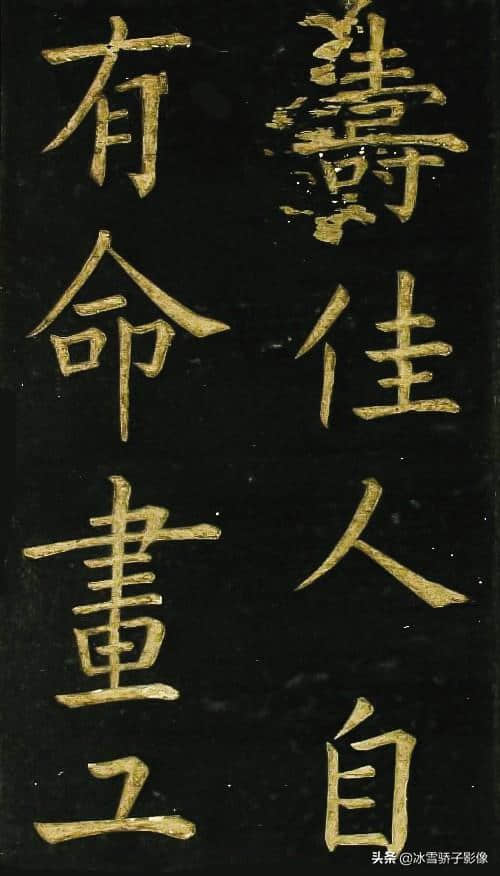 壽佳人自
有命畫工
头条 @冰雪骄子影像